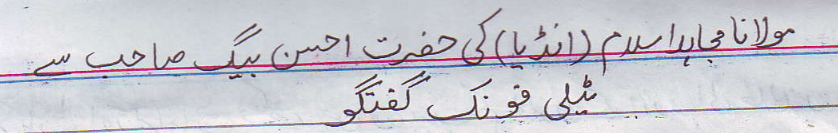 مولانا مجاہد اسلام (انڈیا) کی حضرت احسن بیگ صاحب سے
ٹیلی فونک گفتگو